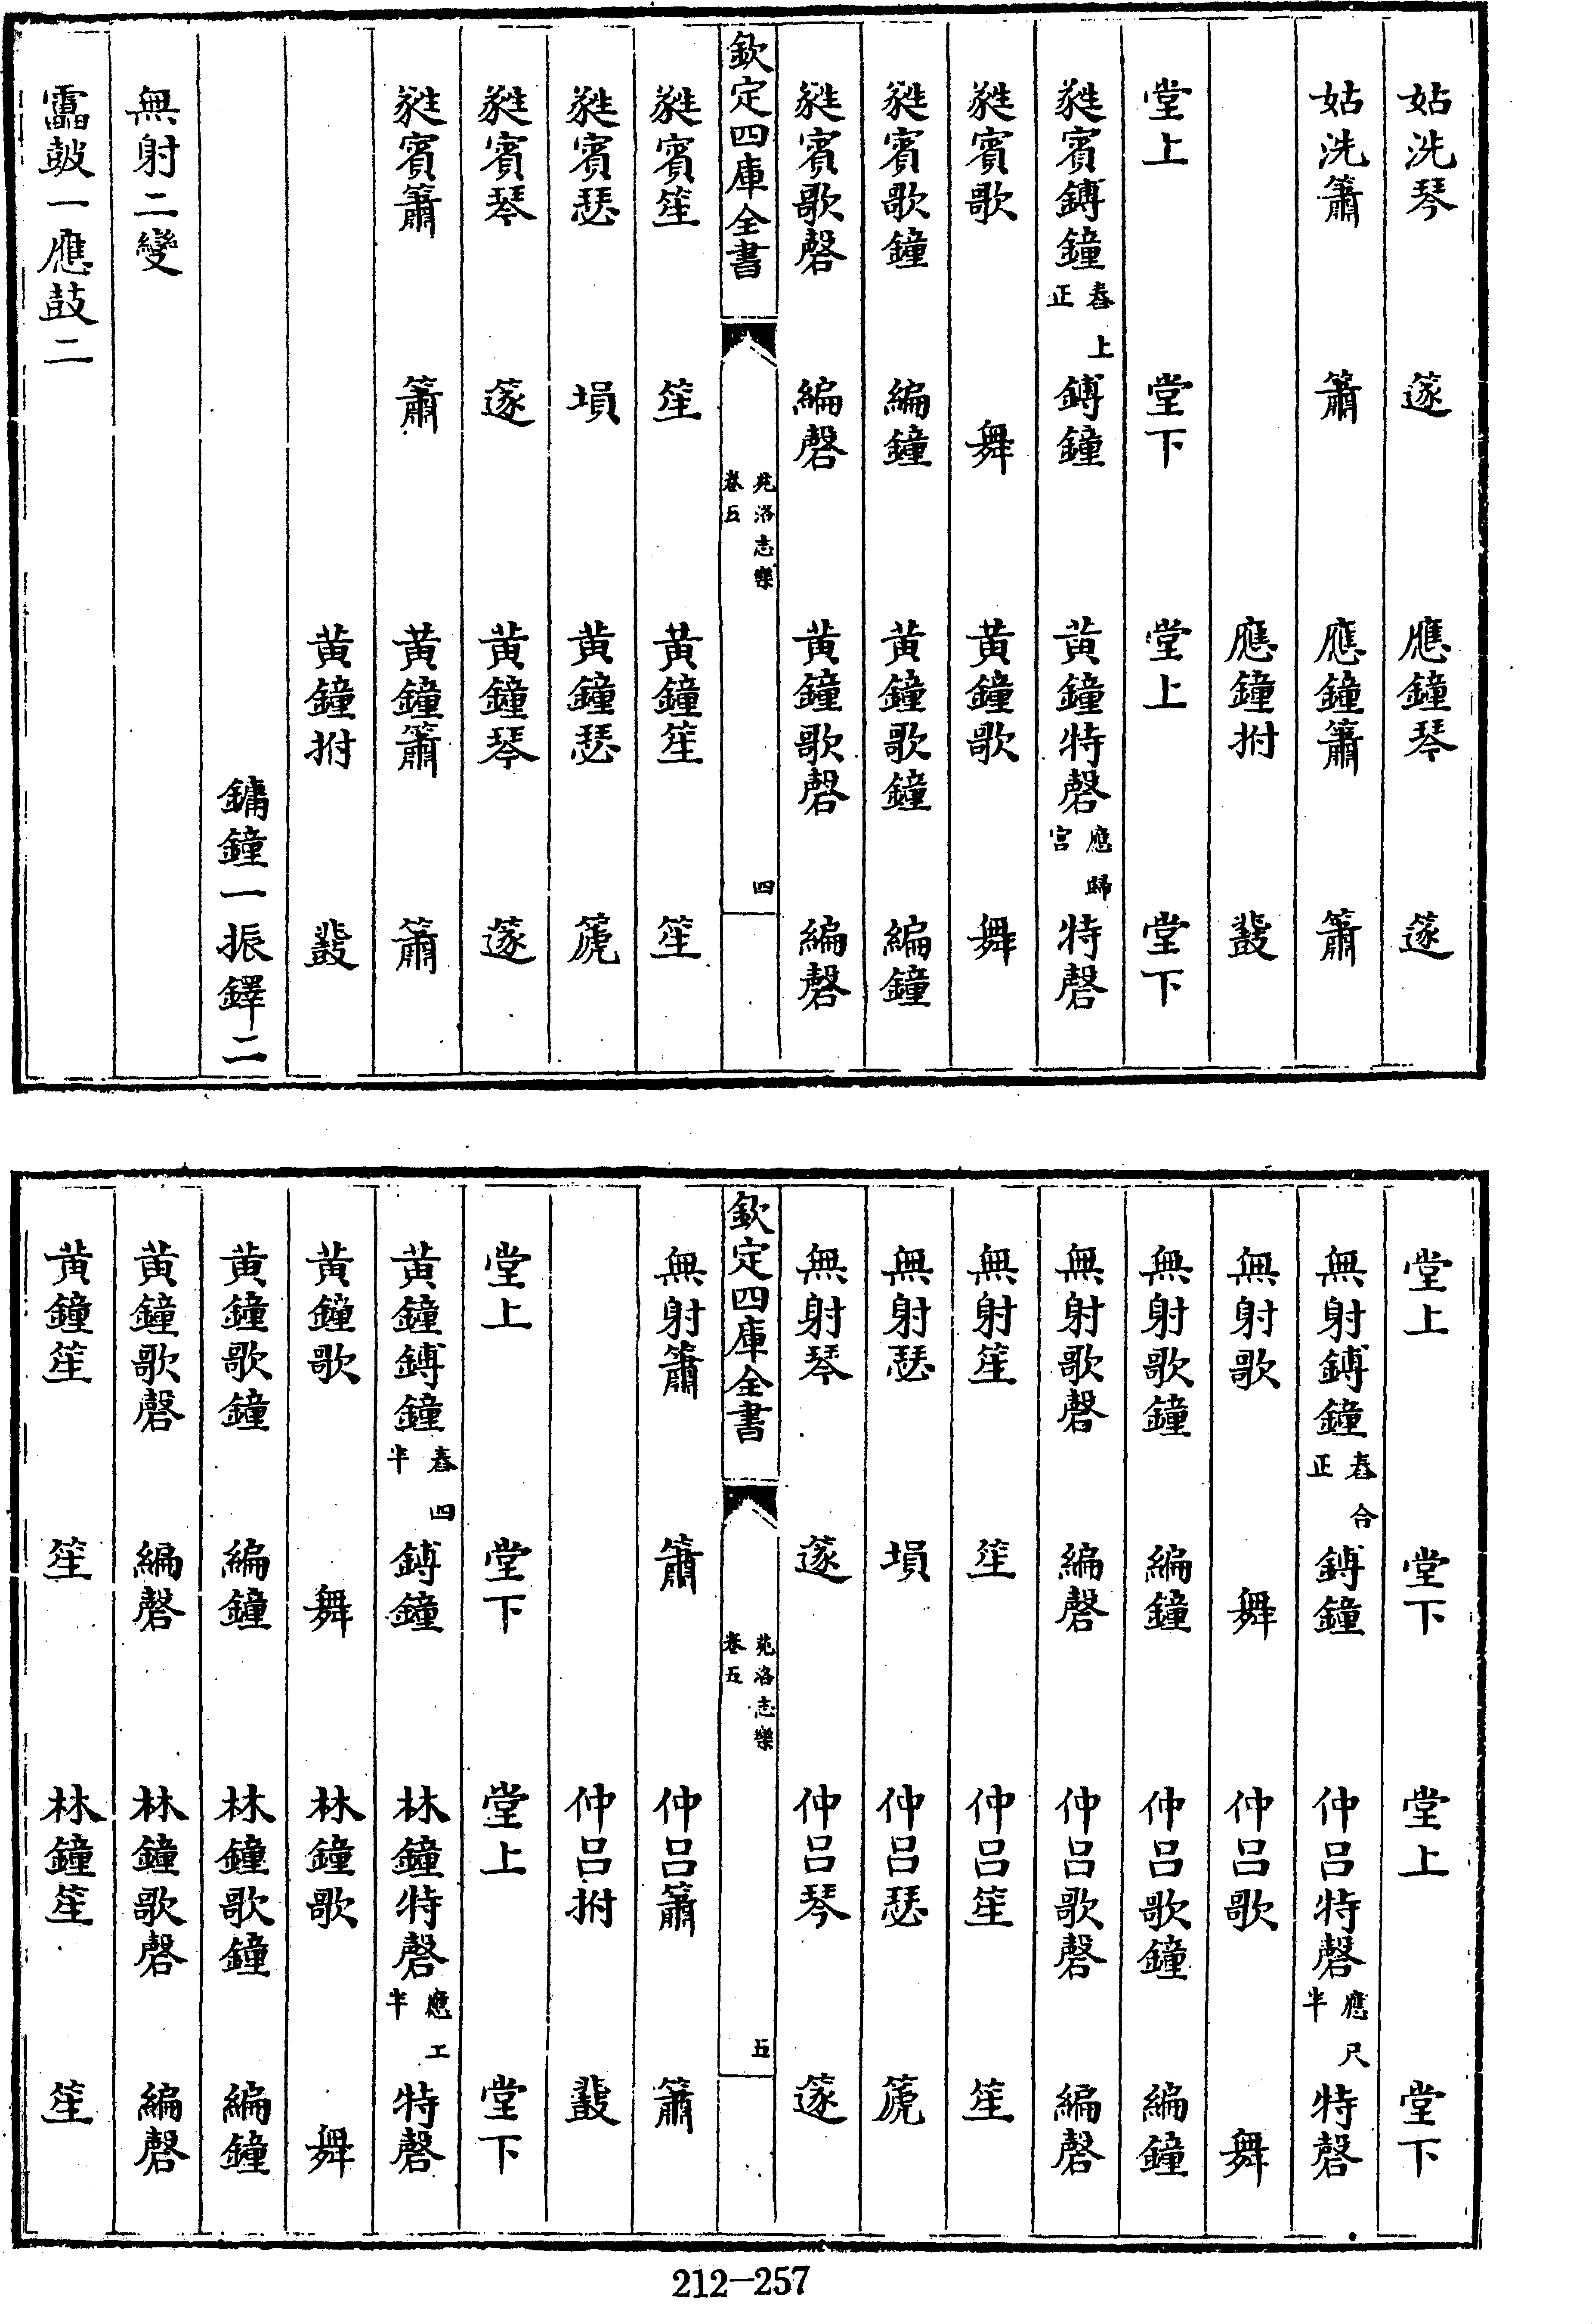 姑洗琴　篴　應鐘琴　篴
姑洗簫　簫　應鐘簫　簫
應鐘拊　鼗
堂上　堂下　堂上　堂下
蕤賓鎛鐘舂正　上　鎛鐘　黃鐘特磬應宮　歸　特磬
蕤賓歌　舞　黃鐘歌　舞
蕤賓歌鐘　編鐘　黃鐘歌鐘　編鐘
蕤賓歌磬　編磬　黃鐘歌磬　編磬
欽定四庫全書　苑洛志樂　卷五　四
蕤賓笙　笙　黃鐘笙　笙
蕤賓瑟　塤　黃鐘瑟　篪
蕤賓琴　篴　黃鐘琴　篴
蕤賓簫　簫　黃鐘簫　簫
黃鐘拊　鼗
鏞鐘一振鐸二
無射二變
靁鼓一應鼓二
堂上　堂下　堂上　堂下
無射鎛鐘舂正　合　鎛鐘　仲呂特磬應半　尺　特磬
無射歌　舞　仲呂歌　舞
無射歌鐘　編鐘　仲呂歌鐘　編鐘
無射歌磬　編磬　仲呂歌磬　編磬
無射笙　笙　仲呂笙　笙
無射瑟　塤　仲呂瑟　篪
無射琴　篴　仲呂琴　篴
欽定四庫全書　苑洛志樂　卷五　五
無射簫　簫　仲呂簫　簫
仲呂拊　鼗
堂上　堂下　堂上　堂下
黃鐘鎛鐘舂半　四　鎛鐘　林鐘特磬應半　工　特磬
黃鐘歌　舞　林鐘歌　舞
黃鐘歌鐘　編鐘　林鐘歌鐘　編鐘
黃鐘歌磬　編磬　林鐘歌磬　編磬
黃鐘笙　笙　林鐘笙　笙
212-257